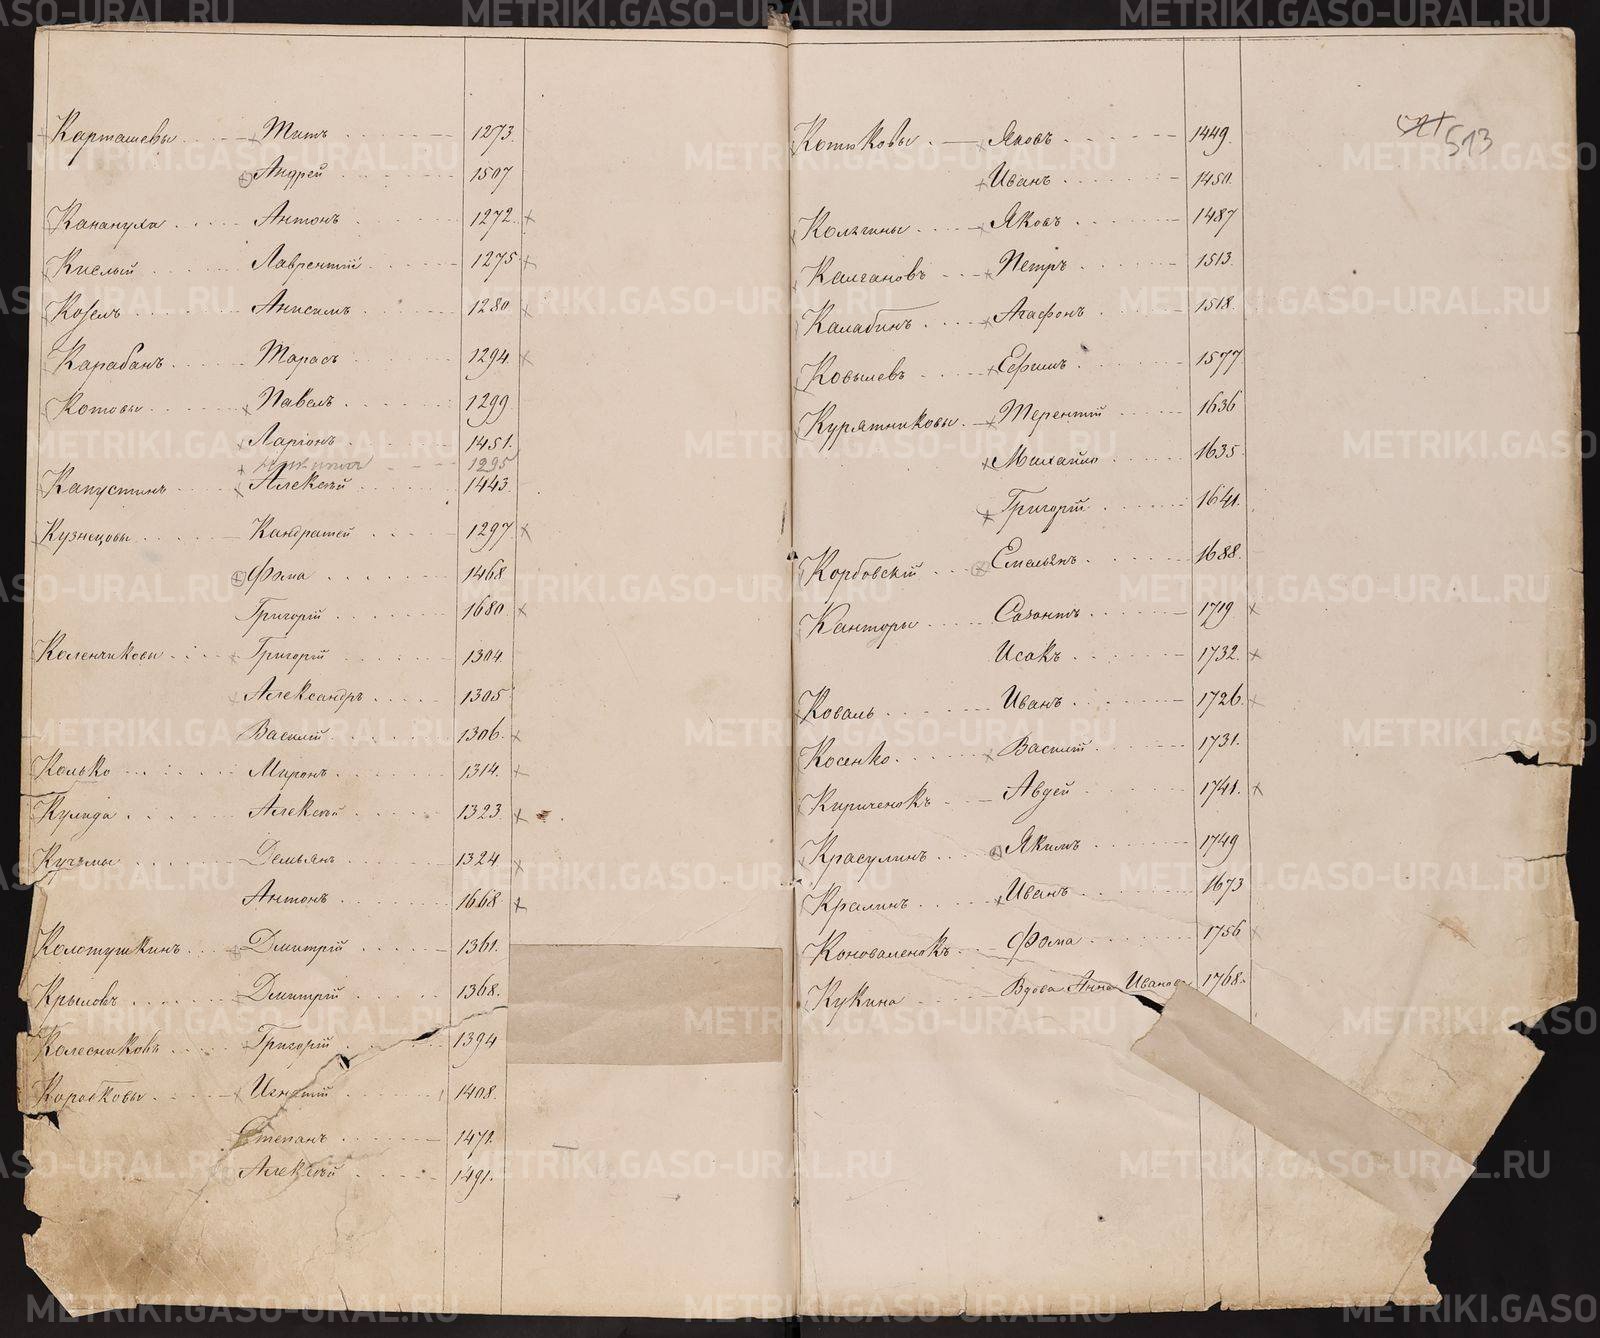 Карташевы Титъ 1273.
Андрей 1507
Канануха Антонъ 1272.
Кислый Лаврентiй 1275
Козелъ Анисимъ 1280
Карабанъ Тарасъ 1294.
Котовы Павелъ 1299
Ларiонъ 1451.
1295
Капустинъ Алексѣй 1443.
Кузнецовы Кандратей 1297
Фома 1468
Григорiй 1680
Коленчиковы Григорiй 1304.
Александръ 1305
Василiй 1306.
Колько Миронъ 1314.
Кулида Алексѣй 1323
Кучьмы Демьянъ 1324
Антонъ 1668
Колотушкинъ Дмитрiй 1361.
Крыловъ Дмитрiй 1368.
Колесниковъ Григорiй 1394
Коробковы Игнатiй 1408.
Степанъ 1471.
Алексѣй 1491.
513
Котиковы Яковъ 1449.
Иванъ 1450.
Колѣгины Яковъ 1487
Калгановъ Петръ 1513.
Калабинъ Агафонъ 1518.
Ковылевъ Ефимъ 1577
Курятниковы Терентiй 1636
Михайло 1635
Григорiй 1641.
Корбовскiй Емельянъ 1688.
Канторы Созонтъ 1719
Исакъ 1732.
Коваль Иванъ 1726.
Косенко Василiй 1731.
Кириченокъ Авдей 1741.
Красулинъ Якимъ 1749
Кралинъ Иванъ 1673
Коноваленокъ Фома 1756
Кукина Вдова Анна Иванова 1768.
METRIKI.GASO-URAL.RU